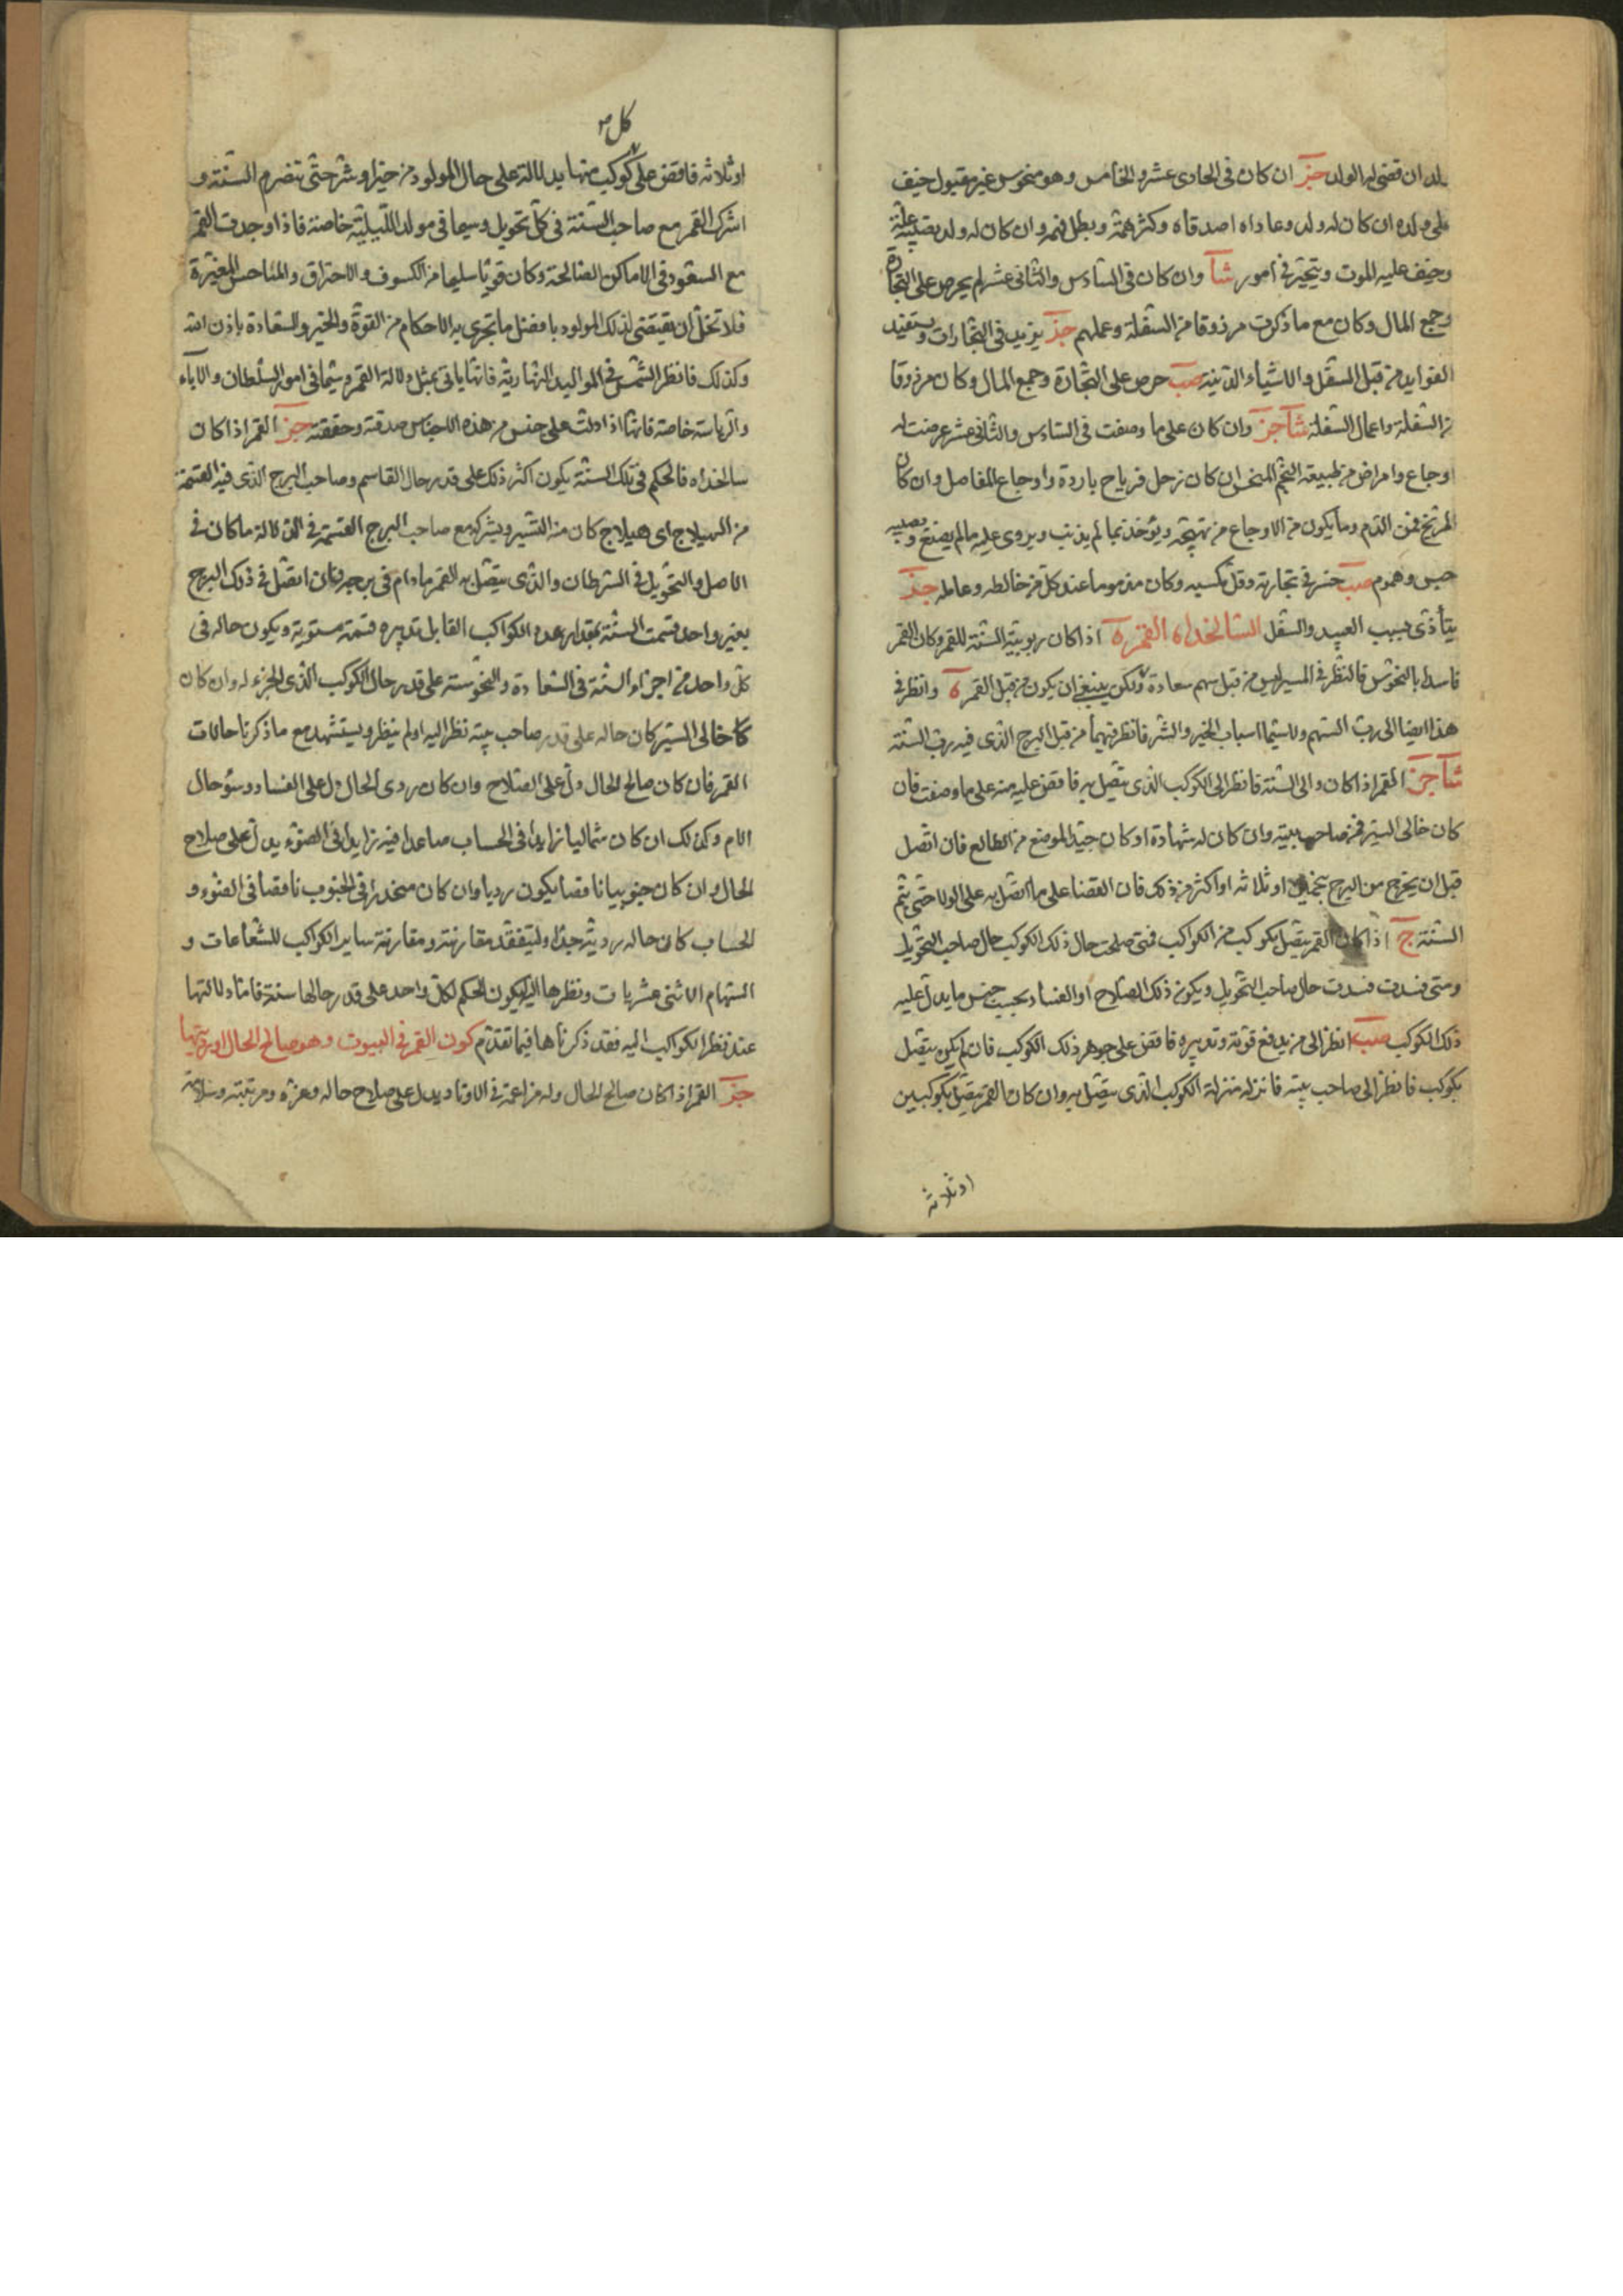 ان قضى له الولد جز ان كان فى الحادى عشر والخامس وهو منحوس غير مقبول خيف
على ولده ان كان له ولد وعاداه اصدقاه وكثر همه وبطل فهمه وان كان له ولد يصيبه علة
وخيف عليه الموت ويتحير فى امور شا وان كان فى السادس والثانى عشر لم يحرص على التجارة
وجمع المال وكان مع ما ذكرت مرزوقا من السفلة وعملهم جز يزيد فى التجارات ويستفيد
الفوايد من قبل السفل والاشياء الدنيه صب حرص على التجارة وجمع المال وكان مرزوقا
من السفلة واعمال السفلة شا جز وان كان على ما وصفت فى السادس والثانى عشر عرضت له
اوجاع وامراض من طبيعة النجم المنحس ان كان زحل فرياح باردة واوجاع المفاصل وان كان
المريخ فمن الدم وما يكون من الاوجاع من تهيجه ويؤخذ بما لم يذنب ويروى عليه ما لم يصنع ويصيبه
حبس وهموم صب خسر فى تجارته وقل كسبه وكان مذموما عند كل من خالطه وعامله جز
يتأذى بسبب العبيد والسفل السالخداه القمر ه اذا كان ربوبية السنة للقمر وكان القمر
فاسدا بالنحوس فالنظر فى المسير ليس من قبل سهم سعادة ولكن ينبغى ان يكون من قبل القمر ه وانظر فى
هذا ايضا الى رب السهم ولا سيما اسباب الخير والشر فانظر فيهما من قبل البرج الذى فيه رب السنة
شا جز القمر اذا كان والى السنة فانظر الى الكوكب الذى يتصل به فاقض عليه منه على ما وصفت فان
كان خالى السير فمن صاحب بيته وان كان له شهادة او كان جيد الموضع من الطالع فان اتصل
قبل ان يخرج من البرج بنجمين او ثلاثه او اكثر من ذلك فان القضا على ما اتصل به على الولا حتى يتم
السنة ج اذا كان القمر يتصل بكوكب من الكواكب فمتى صلحت حال ذلك الكوكب حال صاحب التحويل
ومتى فسدت فسدت حال صاحب التحويل ويكون ذلك الصلاح او الفساد بحسب جنس ما يدل عليه
ذلك الكوكب صب انظر الى من يدفع قوته وتدبيره فاقض على جوهر ذلك الكوكب فان لم يكن يتصل
بكوكب فانظر الى صاحب بيته فانزله منزلة الكوكب الذى يتصل به وان كان القمر يتصل بكوكبين
او ثلاثه
كل
او ثلاثه فاقض على كوكب منها بدلالته على حال المولود من خير او شر حتى تنصرم السنة و
اشرك القمر مع صاحب السنة فى كل تحويل وسيما فى مولد الليلية خاصة فاذا وجدت القمر
مع السعود فى الاماكن الصالحة وكان قويا سليما من الكسوف والاحتراق والمناحس المغيرة
فلا تخل ان يقتضى لذلك المولود بافضل ما تجرى به الاحكام من القوة والخير والسعادة باذن الله
وكذلك فانظر الشمس فى المواليد النهارية فانها ياتى بمثل دلالة القمر وسيما فى امور السلطان والاباء
والرياسة خاصة فانها اذا دلت على جنس من هذه الاجناس صدقته وحققته جز القمر اذا كان
سالخداه فالحكم فى تلك السنة يكون اكثر ذلك على قدر حال القاسم وصاحب البرج الذى فيه القسمة
من الهيلاج اى هيلاج كان من التسيير ويشركه مع صاحب البرج القسمة فى الدلالة ما كان فى
الاصل والتحويل فى السرطان والذى يتصل به القمر ما دام فى برجه فان اتصل فى ذلك البرج
بغير واحد قسمت السنة بمقدار عدد الكواكب القابل تدبيره قسمة مستوية ويكون حاله فى
كل واحد من اجزاء السنة فى السعادة والنحوسته على قدر حال الكوكب الذى الجزء له وان كان
خالى السير كان حاله على قدر صاحب بيته نظر اليه او لم ينظر ويستشهد مع ما ذكرنا حالات
القمر فان كان صالح الحال دل على الصلاح وان كان ردى الحال دل على الفساد وسؤ حال
الام وكذلك ان كان شماليا زايدا فى الحساب صاعدا فيه زايدا فى الضوء يدل على صلاح
الحال وان كان جنوبيا ناقصا يكون رديا وان كان منحدرا فى الجنوب ناقصا فى الضوء و
الحساب كان حاله ردية جدا وليتفقد مقارنته ومقارنة ساير الكواكب للشعاعات و
السهام الاثنى عشريات ونظرها اليه ليكون الحكم لكل واحد على قدر حالها سنة فاما دلالتها
عند نظر الكواكب اليه فقد ذكرناها فيما تقدم كون القمر فى البيوت وهو صالح الحال او
جز القمر اذا كان صالح الحال وله مزاعمة فى الاوتاد يدل على صلاح حاله وعزه ومرتبته وسلامة